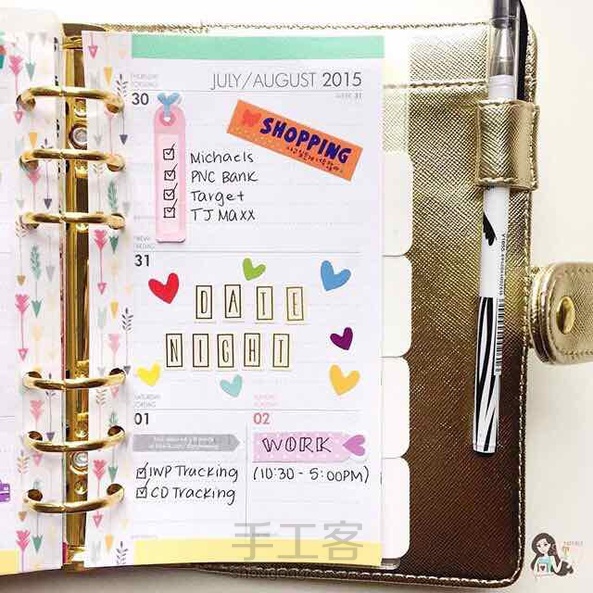 JULY/AUGUST 2015
WEEK 31
30
SHOPPING
Michaels
PNC Bank
Target
TJ Maxx
31
DATE
NIGHT
01
02
WORK
WP Tracking
(10:30 - 5:00PM)
CD Tracking
手工客